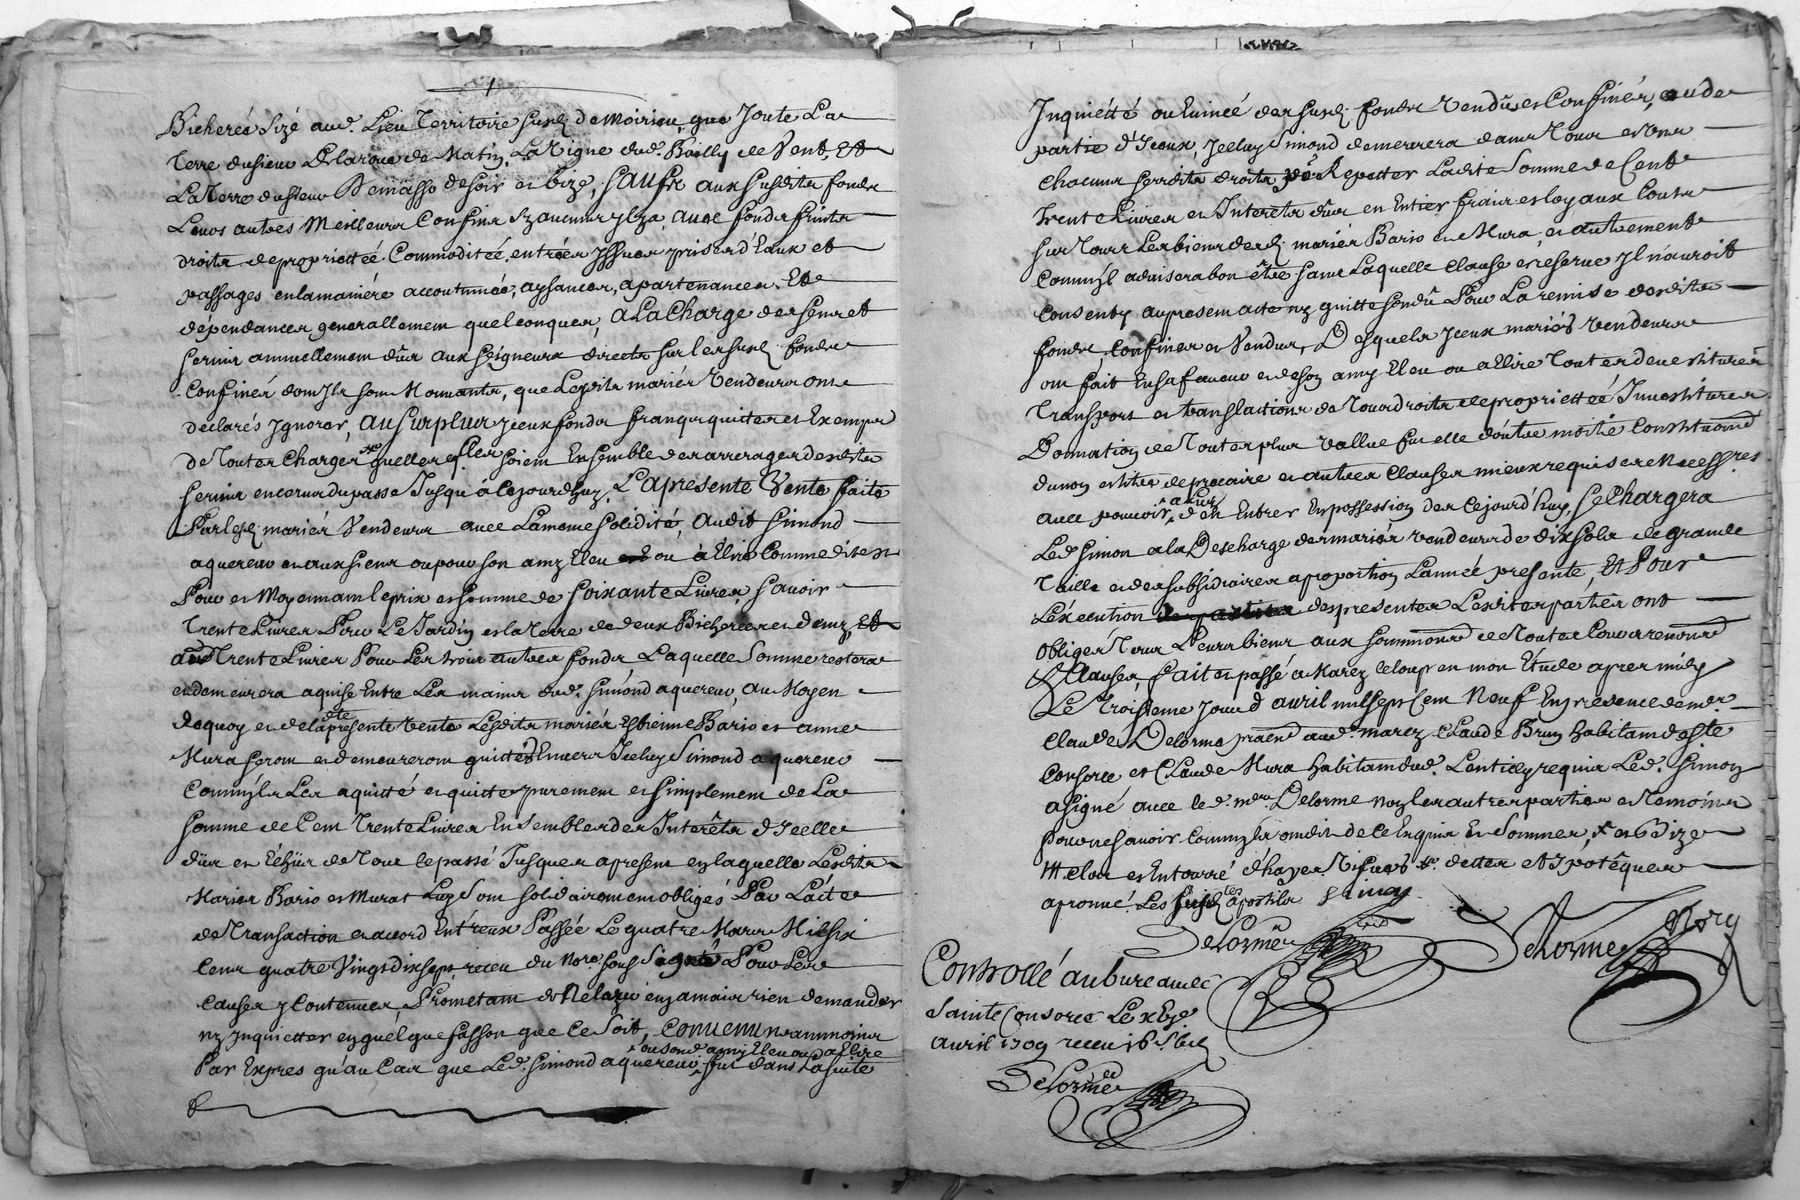 Bicherée Sizé aud. Lieu Territoire susd. de Moirieu, que Joute La
Terre du sieur Delaroue de Matin, La Vigne dud. Bailly de Vent, Et
La Terre du sieur Demasso de soir et bize, Sauf aux susdits fonds
Leurs autres Meilleurs Confins sy aucuns y'lya, avec fonds fruits
droits de propriettéé Commoditéé entrées Issues prises d'Eaux et
passages en la maniére accoutumée, aysances, apartenances Et
dependances generallement quelconques, A La Charge des sens et
servis annuellement dûs aux seigneurs directs sur les susd. fonds
Confinés dont Ils sont Mouvants, que Lesdits mariés Vendeurs ont
declarés Ignorer, Au surplus Iceux fonds francs quittes et Exempts
de Toutes Charges quelles q'lles soient Ensemble des arrerages desdits
servis encourus du passé Jusqu'à Cejourdhuy, L'apresente Vente faite
Par lesd. mariés Vendeurs avec La meme solidité, Audit Simond
aquereur et aux siens ou pour son amy Eleu ou à Elire Comme dit est
Pour et Moyennant le prix et somme de soixante Livres, sçavoir
Trente Livres Pour Le Jardin et la terre de deux Bicherées et demy, Et
Trente Livres Pour Les trois autres fonds Laquelle Somme restera
et demeurera aquise Entre Les mains dud. Simond aquereur, Au Moyen
dequoy et de lapresente vente Lesdits mariés Estienne Bario et anne
Mura seront et demeureront quittes Envers Icelluy Simond aquereur
Comm'yl a Les aquitté et quitte purement et simplement de La
somme de Cent Trente Livres Ensemble des Interêts d'Icelle
dûs et Echûs de Tout le passé Jusques apresent en laquelle Lesdits
Mariés Bario et Murat Luy sont solidairement obligés Par L'acte
de Transaction et accord Entreux Passée Le quatre Mars Mil six
Cens quatre Vingt dix sept receu du Nore. sous Signé Pour Les
Causes y Contenues, Promettant de Ne luy en jamais rien demander
ny Inquietter en quelque fasson que Ce soit, Convenu neanmoins
ou son d. amy Eleu ou a Elire
Par Expres qu'au Cas que Led. Simond aquereur fut dans La suite
Inquiétté ou Evincé des susd. fonds Vendus et Confinés, ou de
partie d'Iceux, Icelluy Simond demeurera dans Tous et Uns
Chacuns ses dits droits pr. Repetter Ladite Somme de Cent
trente Livres et Interêts d'Icelle en Entier frais et loyaux Couts
sur Tous Les biens desd. mariés Bario et Mura, et autrement
Comm'yl advisera bon être sans Laquelle Clause et reserve Il n'auroit
Consenty au present acte ny quitte Sond. Pour La remise desdits
fonds, Confinés et Vendus, Desquels Iceux mariés Vendeurs
ont fait En sa faveur et de son amy Eleu ou a Elire Toutes devestitures
Transport et translations de Tous droits de propriettéé Investitures
Donnation de Toutes plus Vallue fut elle d'outre moitié Constitution
du nom et titre de precaire et autres Clauses mieux requises et Necess.res
avec pouvoir a Luy d'en Entrer En possession des Cejourd'huy, se Chargera
Led. Simon a la Descharge des mariés vendeurs de dix sols de grande
Taille et des subsidiaires aproportion L'année presente, Et Pour
L'éxecution des presentes Lesdites parties ont
obligés Tous Leurs biens aux soumissions de Toutes Cours renond
& Clauses, fait et passé a Marcy le loup en mon Etude apres midy
Le Troisieme Jour d'avril mil sept Cent Neuf En presence de mr.
Claude Delorme praén aud. marcy Claude Brun habitant de Ste
Consorce et Claude Mura habitant dud. Lentilly requis Led. Simon
a signé avec led. mre. Delorme non les autres parties et Temoins
pour ne sçavoir comm'yls ont dit de Ce Enquis En Sommés, & et Bize
M clos et Entourré d'hayes Vifves tre. dettes et Ipotêques
apronné Les susd. apostiles Simon
Delorme Delorme Nory
Controllé au bureau de
Sainte Consorce Le xEze
avril 1709 receu 16 s. 6 d
Delorme